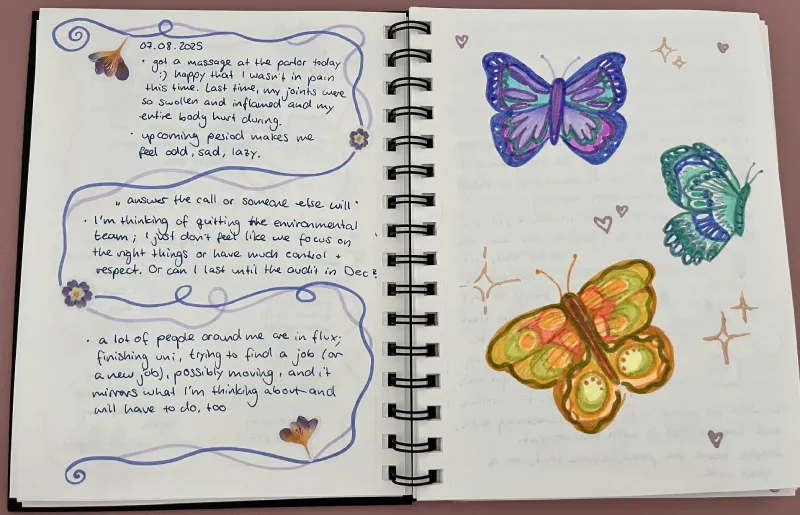 07.08.2025
· got a massage at the parlor today
:) happy that I wasn't in pain
this time. Last time, my joints were
so swollen and inflamed and my
entire body hurt during.
· upcoming period makes me
feel odd, sad, lazy.
„ answer the call or someone else will "
· I'm thinking of quitting the environmental
team; I just don't feel like we focus on
the right things or have much control +
respect. Or can I last until the audit in Dec?
· a lot of people around me are in flux;
finishing uni, trying to find a job (or
a new job), possibly moving, and it
mirrors what I'm thinking about and
will have to do, too